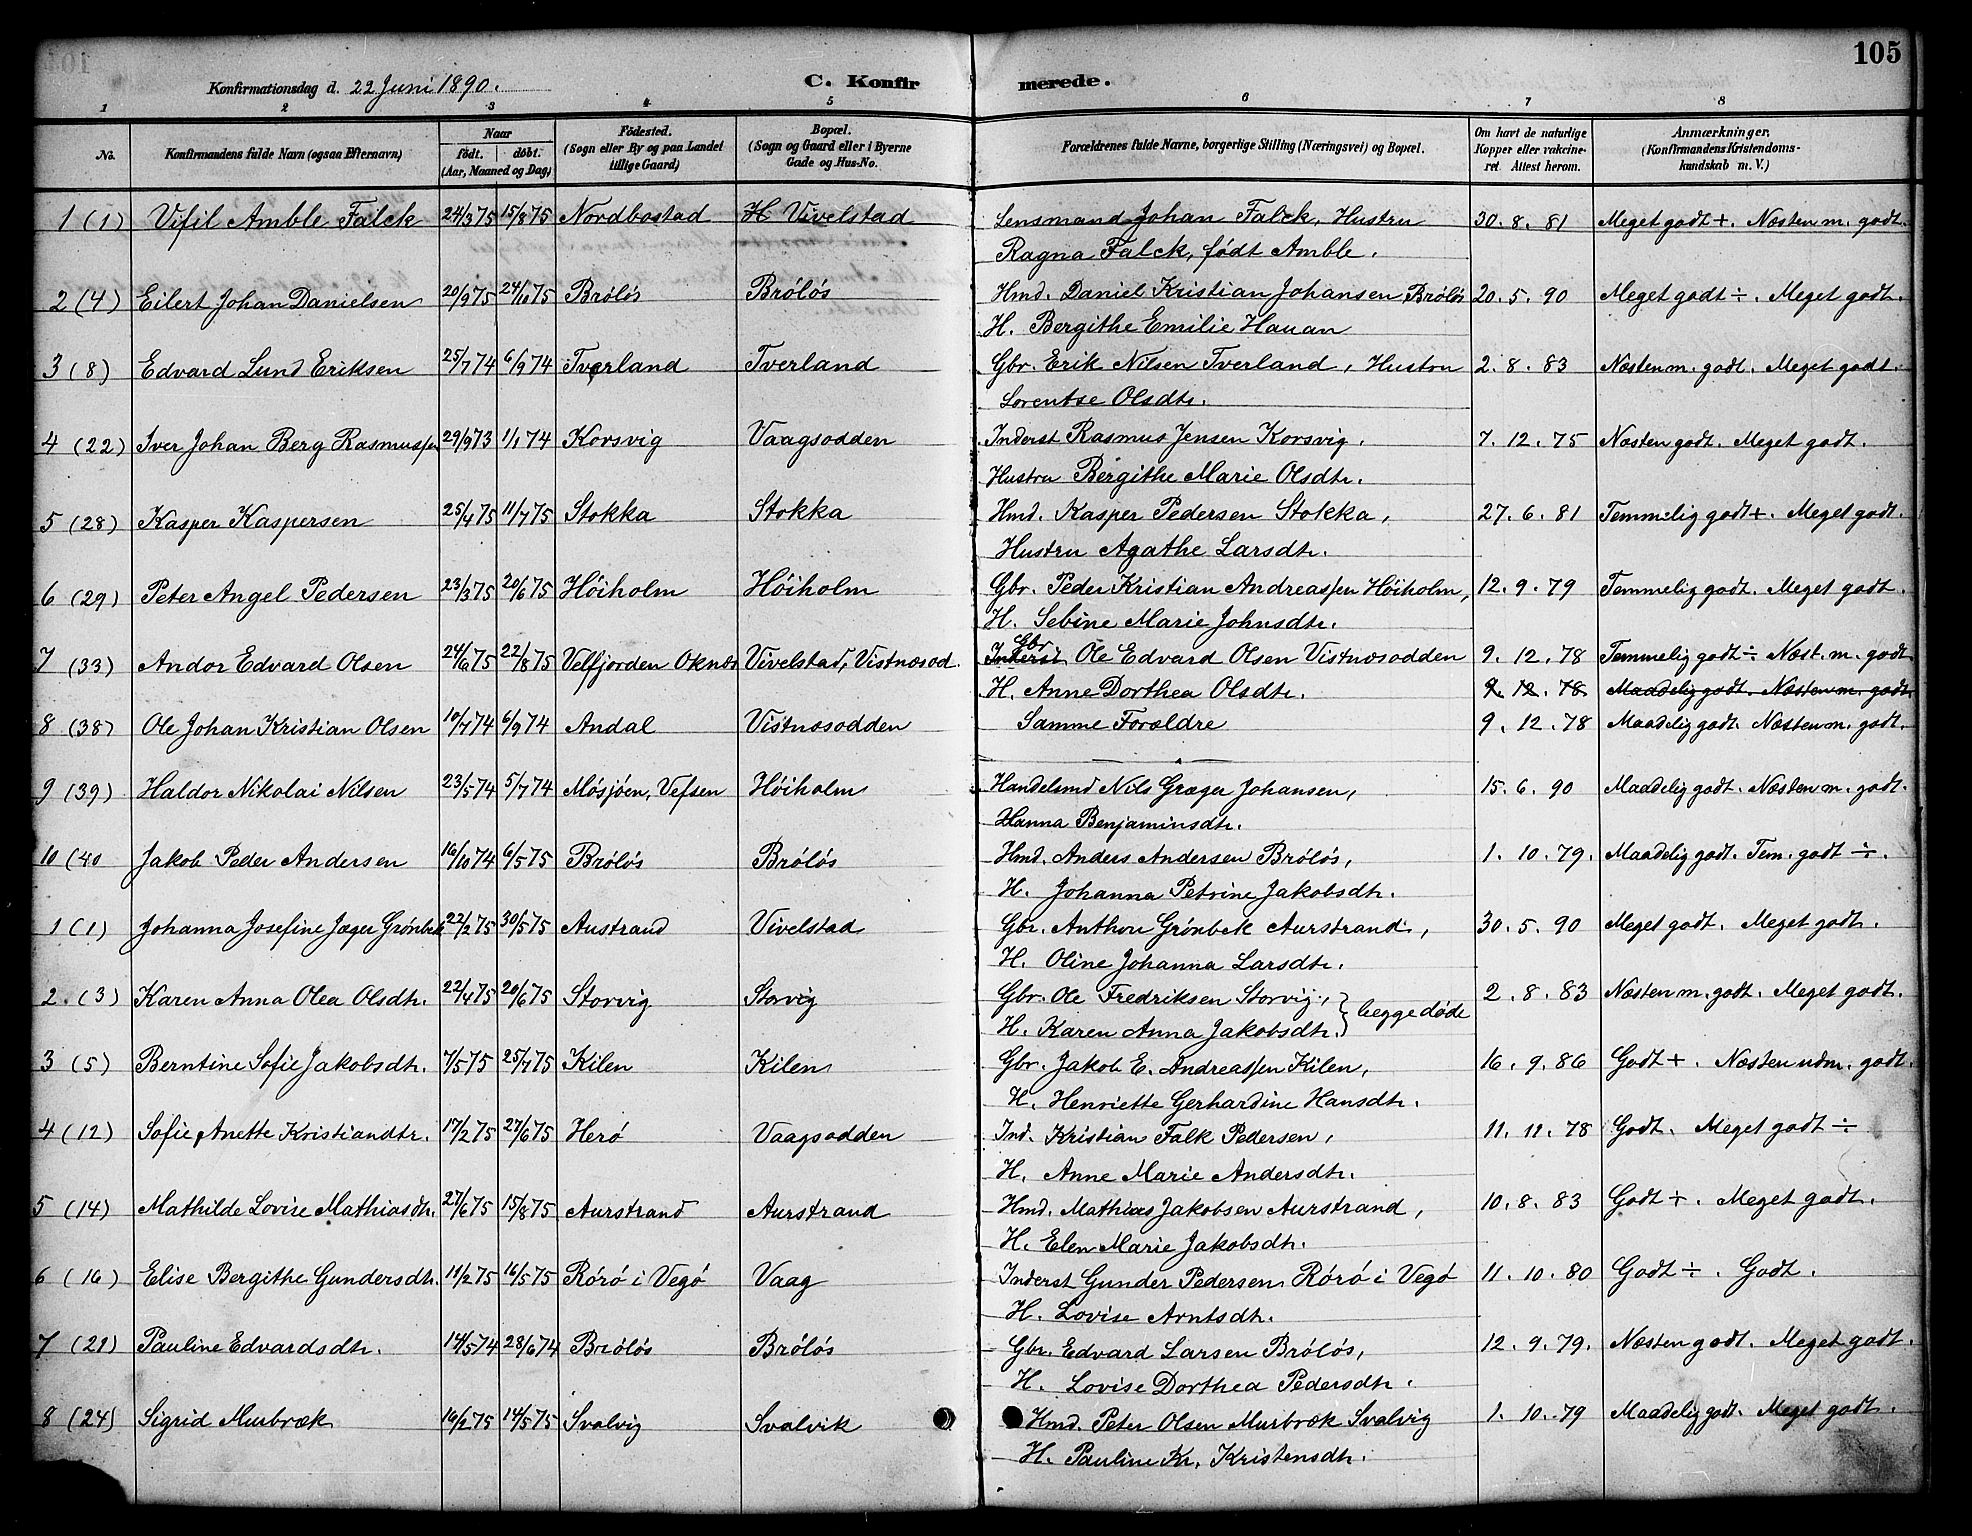 105
Konfirmationsdag d. 22 Juni 1890. C. Konfirmerede.
1 2 3 4 5 6 7 8
No. Konfirmandens fulde Navn (ogsaa Efternavn) Naar født. døbt. (Aar, Maaned og Dag) Fødested. (Sogn eller By og paa Landet tillige Gaard) Bopæl. (Sogn og Gaard eller i Byerne Gade og Hus-No. Forældrenes fulde Navne, borgerlige Stilling (Næringsvei) og Bopæl. Om havt de naturlige Kopper eller vakcineret. Attest herom. Anmærkninger. (Konfirmandens Kristendomskundskab m. V.)
1 (1) Vifil Amble Falck 24/3 75 15/8 75 Nordbostad H Vivelstad Lensmand Johan Falck, Hustru 30. 8. 81 Meget godt +. Næsten m. godt.
Ragna Falck, født Amble.
2 (4) Eilert Johan Danielsen 20/9 75 24/10 75 Brøløs Brøløs Hmd. Daniel Kristian Johansen Brøløs 20. 5. 90 Meget godt ÷. Meget godt.
H. Bergithe Emilie Hauan
3 (8) Edvard Lund Eriksen 25/7 74 6/9 74 Tverland Tverland Gbr. Erik Nilsen Tverland, Hustru 2. 8. 83 Næsten m. godt. Meget godt.
Lorentse Olsdtr.
4 (22) Iver Johan Berg Rasmussen 29/9 73 1/1 74 Korsvig Vaagsodden Inderst Rasmus Jensen Korsvig. 7. 12. 75 Næsten godt. Meget godt.
Hustru Bergithe Marie Olsdtr.
5 (28) Kasper Kaspersen 25/4 75 11/7 75 Stokka Stokka Hmd. Kasper Pedersen Stokka, 27. 6. 81 Temmelig godt +. Meget godt.
Hustru Agathe Larsdtr.
6 (29) Peter Angel Pedersen 23/3 75 20/6 75 Høiholm Høiholm Gbr. Peder Kristian Andreassen Høiholm, 12. 9. 79 Temmelig godt. Meget godt.
H. Sebine Marie Johnsdtr.
7 (33) Andor Edvard Olsen 24/6 75 22/8 75 Velfjorden Oknes Vivelstad, Vistnæsod. Inderst Gbr Ole Edvard Olsen Vistnæsodden 9. 12. 78 Temmelig godt ÷ Næst. m. godt
H. Anne Dorthea Olsdtr. 9. 12. 78 Maadelig godt. Næsten m. godt.
8 (38) Ole Johan Kristian Olsen 10/7 74 6/9 74 Andal Vistnæsodden Samme Forældre 9. 12. 78 Maadelig godt. Næsten m. godt.
9 (39) Haldor Nikolai Nilsen 23/5 74 5/7 74 Mosjøen, Vefsen Høiholm Handelsmd Nils Græger Johansen, 15. 6. 90 Maadelig godt. Næsten m. godt.
Hanna Benjaminsdtr.
10 (40 Jakob Peder Andersen 16/10 74 6/5 75 Brøløs Brøløs Hmd. Anders Andersen Brøløs, 1. 10. 79. Maadelig godt. Tem. godt ÷.
H. Johanna Petrine Jakobsdtr.
1 (1) Johanna Josefine Jæger Grønbek 22/2 75 30/5 75 Austrand Vivelstad Gbr. Anthon Grønbek Aurstrand, 30. 5. 90 Meget godt. Meget godt.
H. Oline Johanna Larsdtr.
2. (3) Karen Anna Olea Olsdtr. 22/4 75 20/6 75 Storvig Storvig Gbr. Ole Fredriksen Storvig, } begge døde 2. 8. 83 Næsten m. godt. Meget godt.
H. Karen Anna Jakobsdtr.
3 (5) Berntine Sofie Jakobsdtr. 7/5 75 25/7 75 Kilen Kilen Gbr. Jakob E. Andreassen Kilen, 16. 9. 86 Godt +. Næsten udm. godt.
H. Henriette Gerhardine Hansdtr.
4 (12) Sofie Anette Kristiandtr. 17/2 75 27/6 75 Herø Vaagsodden Ind. Kristian Falk Pedersen, 11. 11. 78 Godt. Meget godt ÷
H. Anne Marie Andersdtr.
5 (14) Mathilde Lovise Mathiasdtr. 27/6 75 15/8 75 Aurstrand Aurstrand Hmd. Mathias Jakobsen Aurstrand, 10. 8. 83 Godt +. Meget godt.
H. Elen Marie Jakobsdtr.
6 (16) Elise Bergithe Gundersdtr. 11/2 75 16/5 75 Rørø i Vegø Vaag Inderst Gunder Pedersen Rørø i Vegø 11. 10. 80 Godt ÷. Godt.
H. Lovise Arntsdtr.
7 (21) Pauline Edvardsdtr. 14/5 74 28/6 74 Brøløs Brøløs Gbr. Edvard Larsen Brøløs, 12. 9. 79. Næsten godt. Meget godt.
H. Lovise Dorthea Pedersdtr.
8 (24) Sigrid Murbræk 16/2 75 14/5 75 Svalvig Svalvik Hmd. Peter Olsen Murbræk Svalvig 1. 10. 79 Maadelig godt. Meget godt.
H. Pauline Kr. Kristensdtr.